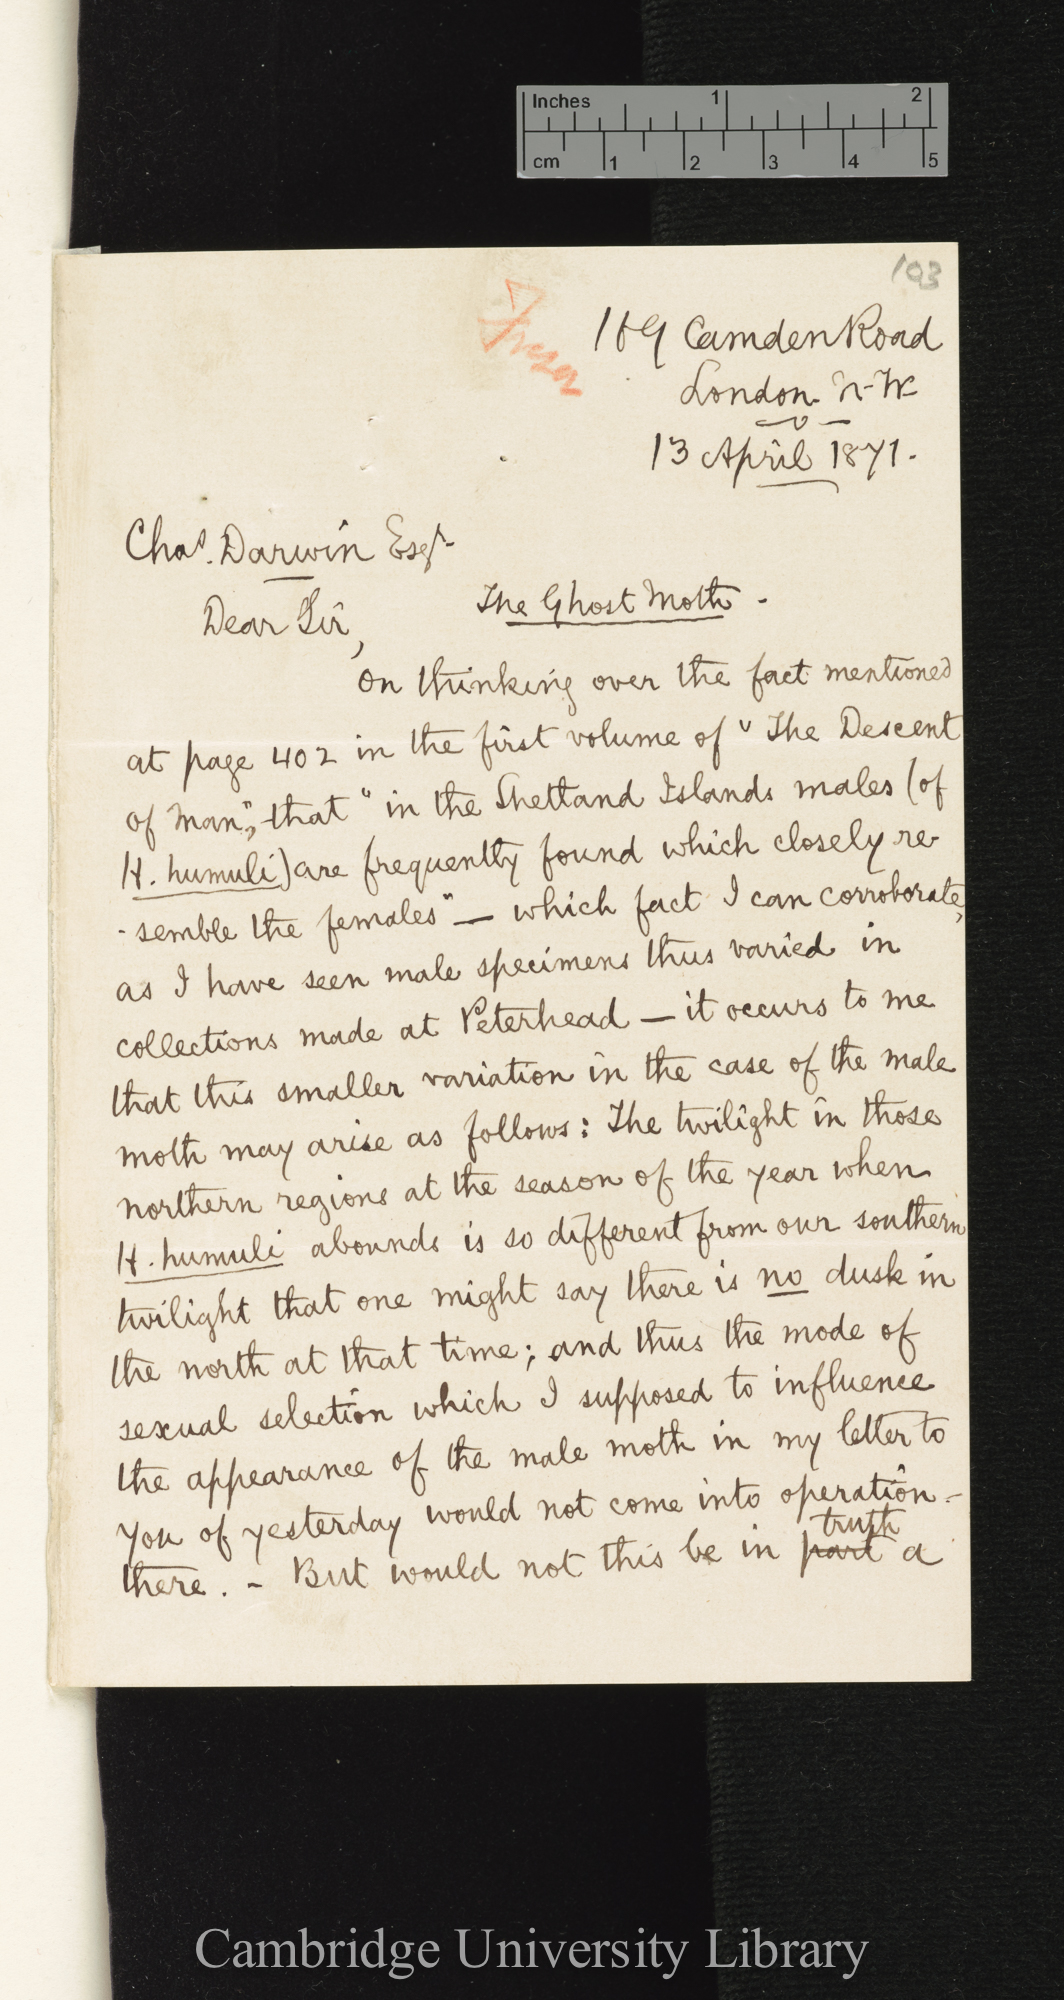 Inches 1 2
cm 1 2 3 4 5
103
Fraser
169 Camden Road
London. N-W-
13 April 1871.
Chas. Darwin Esqr-
The Ghost Moth -
Dear Sir,
On thinking over the fact mentioned
at page 402 in the first volume of "The Descent
of Man", that "in the Shetland Islands males (of
H. humuli) are frequently found which closely re-
-semble the females" — which fact I can corroborate,
as I have seen male specimens thus varied in
collections made at Peterhead — it occurs to me
that this smaller variation in the case of the male
moth may arise as follows: The twilight in those
northern regions at the season of the year when
H. humuli abounds is so different from our southern
twilight that one might say there is no dusk in
the north at that time; and thus the mode of
sexual selection which I supposed to influence
the appearance of the male moth in my letter to
you of yesterday would not come into operation -
truth
there. - But would not this be in part a
Cambridge University Library